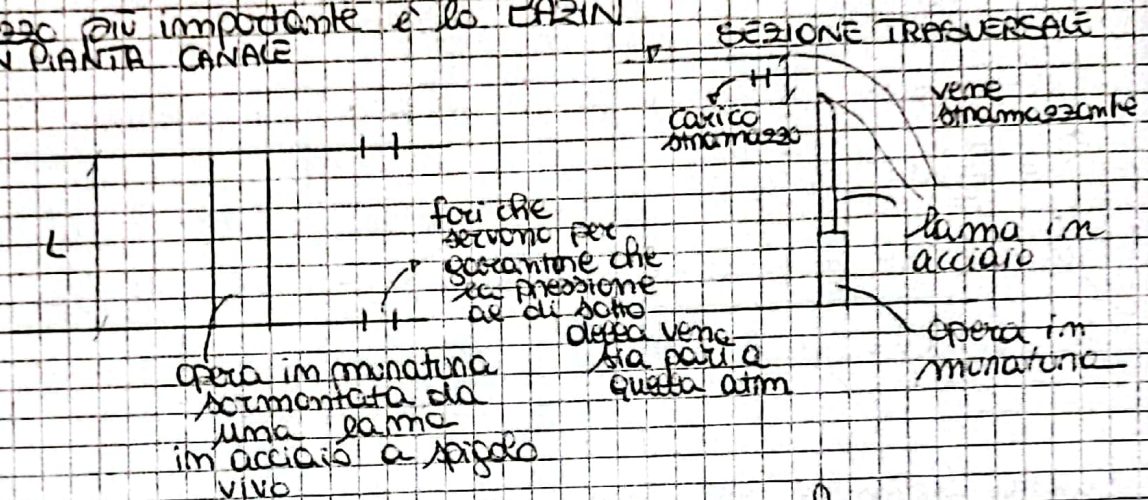 più importante è lo BAZIN
PIANTA CANALE
SEZIONE TRASVERSALE
H
carico
stramazzo
vena
stramazzante
L
fori che
servono per
garantire che
la pressione
al di sotto
della vena
sia pari a
quella atm
lama in
acciaio
opera in
muratura
opera in muratura
sormontata da
una lama
in acciaio a spigolo
vivo